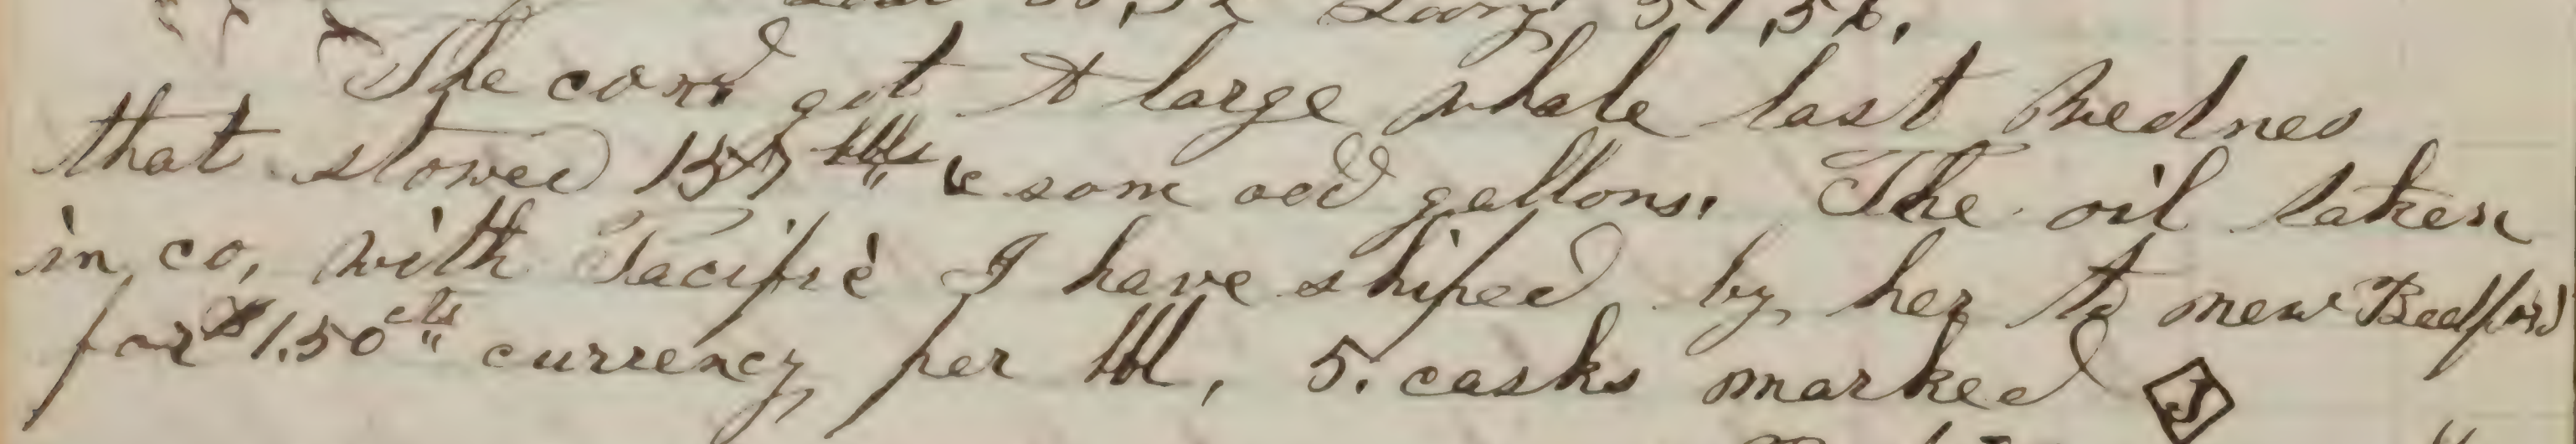 Long 51,56,
The cond got A large whale last Wednes
that stowed 137 bbls & som odd gallons. The oil taken
in co, with Pacific I have shiped by her to new Bedford
for $1.50 cts currency per bbl, 5. casks marked J